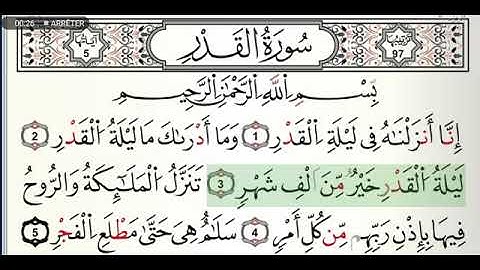 00:26 ■ ARRÊTER
آياتها 5
سُورَةُ الْقَدْرِ
ترتيبها 97
بِسْمِ اللَّهِ الرَّحْمَٰنِ الرَّحِيمِ
إِنَّا أَنزَلْنَٰهُ فِى لَيْلَةِ الْقَدْرِ 1 وَمَا أَدْرَىٰكَ مَا لَيْلَةُ الْقَدْرِ 2
لَيْلَةُ الْقَدْرِ خَيْرٌ مِّنْ أَلْفِ شَهْرٍ 3 تَنَزَّلُ الْمَلَٰٓئِكَةُ وَالرُّوحُ
فِيهَا بِإِذْنِ رَبِّهِم مِّن كُلِّ أَمْرٍ 4 سَلَٰمٌ هِىَ حَتَّىٰ مَطْلَعِ الْفَجْرِ 5